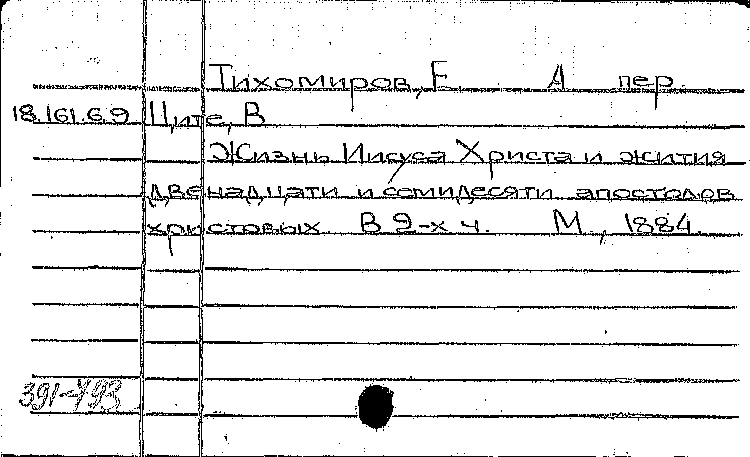 Тихомиров, Е. А пер.
18.161.6.9 Ците, В
Жизнь Иисуса Христа и жития
двенадцати и семидесяти апостолов
христовых. В 2-х ч. М., 1884.
391-493